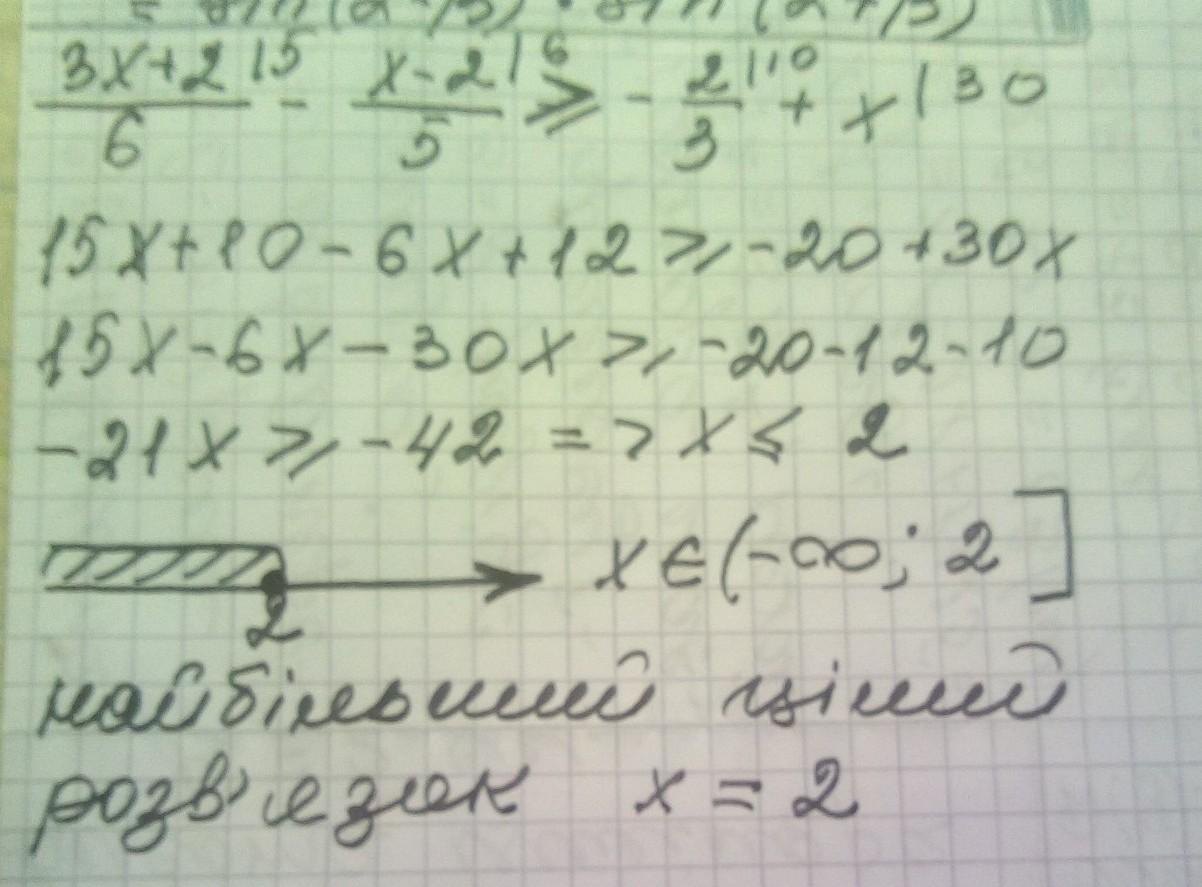 = sin(α-β)·sin(α+β)
(3x+2)/6 |5 - (x-2)/5 |6 ⩾ -2/3 |10 + x |30
15x+10-6x+12⩾-20+30x
15x-6x-30x⩾-20-12-10
-21x⩾-42 => x⩽2
2 x∈(-∞; 2]
найбільший цілий
розв'язок x=2